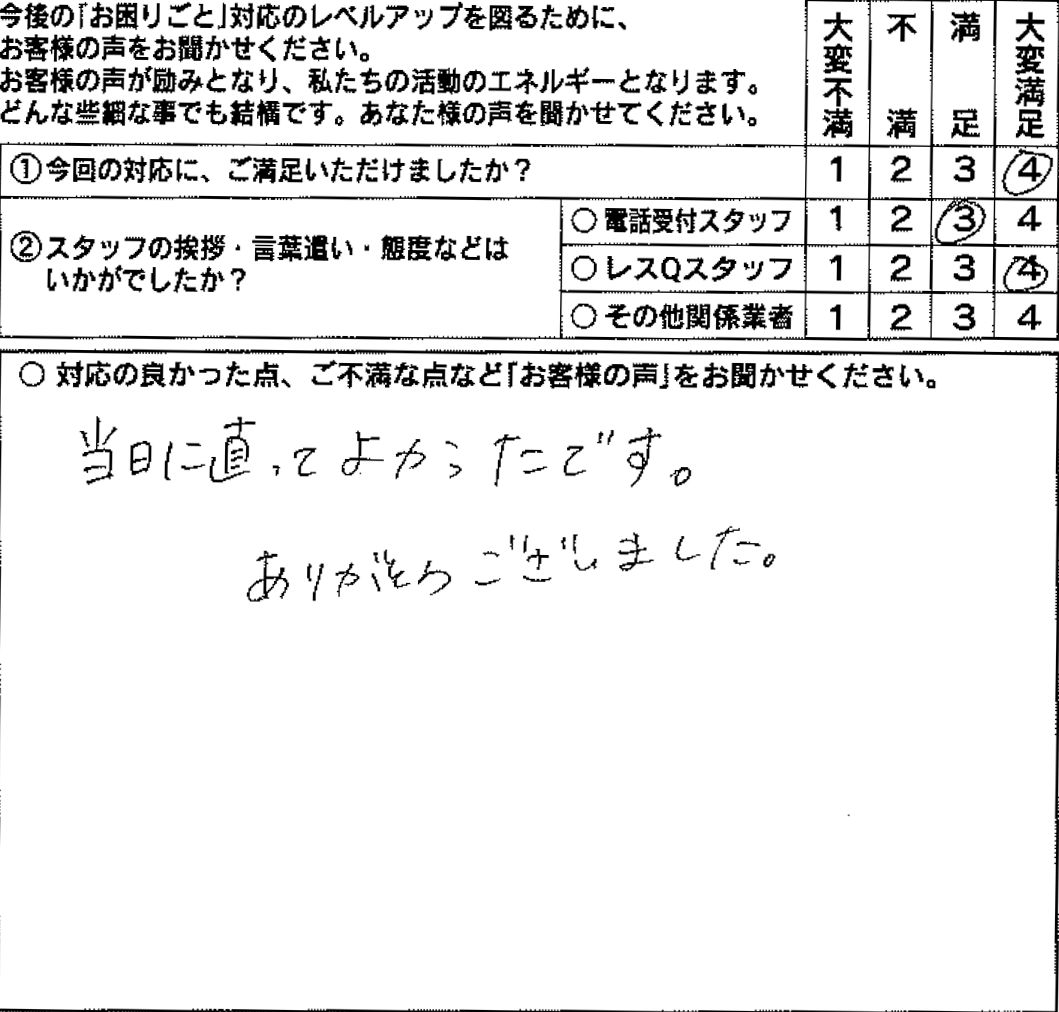 今後の「お困りごと」対応のレベルアップを図るために、
お客様の声をお聞かせください。
お客様の声が励みとなり、私たちの活動のエネルギーとなります。
どんな些細な事でも結構です。あなた様の声を聞かせてください。
大変不満 不満 満足 大変満足
①今回の対応に、ご満足いただけましたか？ 1 2 3 4
②スタッフの挨拶・言葉遣い・態度などは
いかがでしたか？
○電話受付スタッフ 1 2 3 4
○レスQスタッフ 1 2 3 4
○その他関係業者 1 2 3 4
○ 対応の良かった点、ご不満な点など「お客様の声」をお聞かせください。
当日に直ってよかったです。
ありがとうございました。